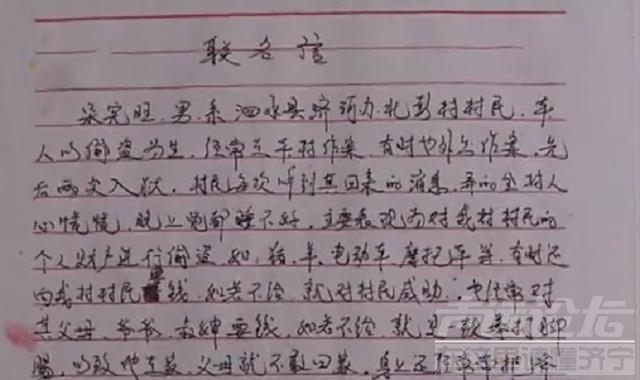 联名信
宗完旺，男，系泗水县济河办北彭村村民，本
人以偷盗为生，经常在本村作案，有时也外出作案，先
后两次入狱，村民每次听到其回来的消息，弄的全村人
心慌慌，晚上觉都睡不好，主要表现为对我村村民的
个人财产进行偷盗如，猪、羊、电动车、摩托车等，有时还
向我村村民要钱，如若不给，就对村民威胁，也经常对
其父母、爷爷、叔婶要钱，如若不给，就是一顿暴打脚
踢，以致他
父母就不敢回家，真上还
在这里读懂济宁